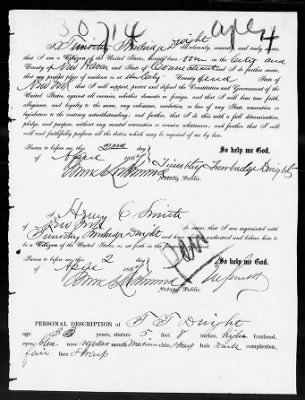 3 714 Apl 4
I, Timothy Trowbridge Dwight do solemnly, sincerely, and truly
that I am a Citizen of the United States, having been born in the City and
County of New Haven and State of Connecticut I do further swear,
that my present place of residence is at County and State of
New York that I will support, protect and defend the Constitution and Government of the
United States against all enemies, whether domestic or foreign, and that I will bear true faith,
allegiance, and loyalty to the same, any ordinance, resolution, or law of any State convention or
legislature to the contrary notwithstanding; and further, that I do this with a full determination,
pledge, and purpose, without any mental reservation or evasion whatsoever; and further, that I will
well and faithfully perform all the duties which may be required of me by law.
So help me God.
Sworn to before me, this 2nd day
of April Timothy Trowbridge Dwight
Notary Public.
I, Henry C Smith
of New York do swear that I am acquainted with
Timothy Trowbridge Dwight and believe him to
be a Citizen of the United States,
So help me God.
Sworn to before me this 2 day
of April
Notary Public.
PERSONAL DESCRIPTION of T T Dwight
age stature 5 feet 8 inches, high forehead,
eyes blue nose regular mouth medium chin sharp hair dark complexion,
fair face sharp